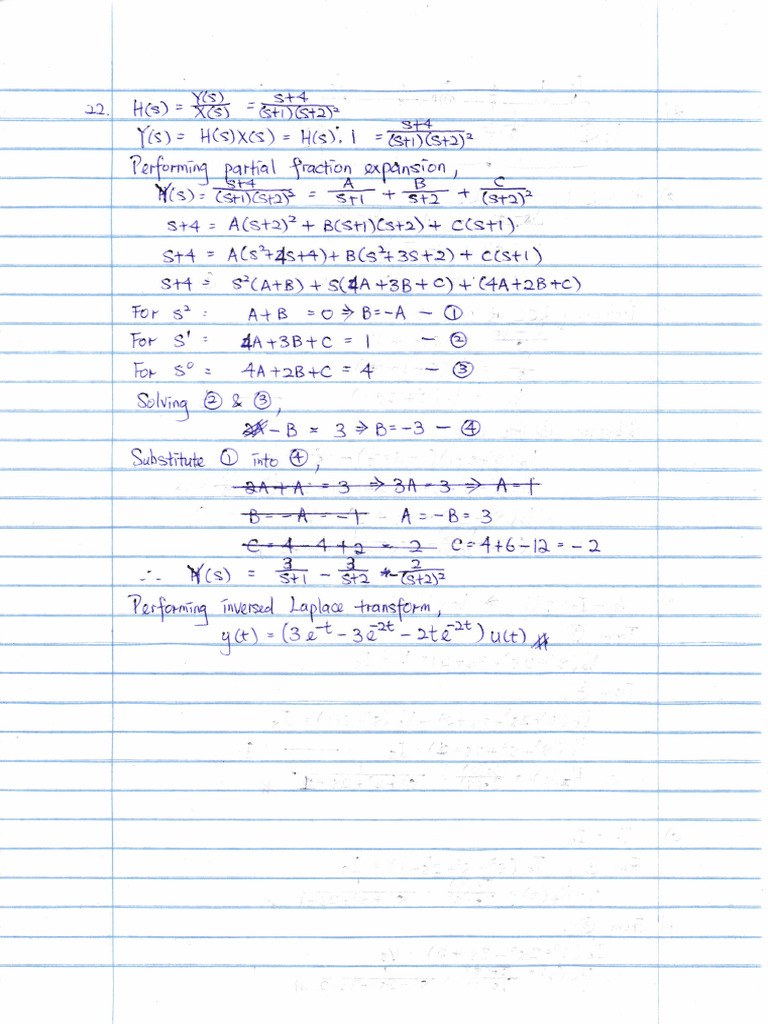 22. H(s) = Y(s)/X(s) = s+4/(s+1)(s+2)²
Y(s) = H(s)X(s) = H(s)·1 = s+4/(s+1)(s+2)²
Performing partial fraction expansion,
Y(s) = s+4/(s+1)(s+2)² = A/s+1 + B/s+2 + C/(s+2)²
s+4 = A(s+2)² + B(s+1)(s+2) + C(s+1)
s+4 = A(s²+4s+4) + B(s²+3s+2) + C(s+1)
s+4 = s²(A+B) + s(4A+3B+C) + (4A+2B+C)
For s²: A+B = 0 ⇒ B=-A – ①
For s¹: 4A+3B+C = 1 – ②
For s⁰: 4A+2B+C = 4 – ③
Solving ② & ③,
-B = 3 ⇒ B=-3 – ④
Substitute ① into ④,
2A+A = 3 ⇒ 3A=3 ⇒ A=1
B = -A = -1 A = -B = 3
C = 4-4+2 = 2 C = 4+6-12 = -2
∴ Y(s) = 3/s+1 - 3/s+2 - 2/(s+2)²
Performing inversed Laplace transform,
y(t) = (3e^-t - 3e^-2t - 2te^-2t) u(t)